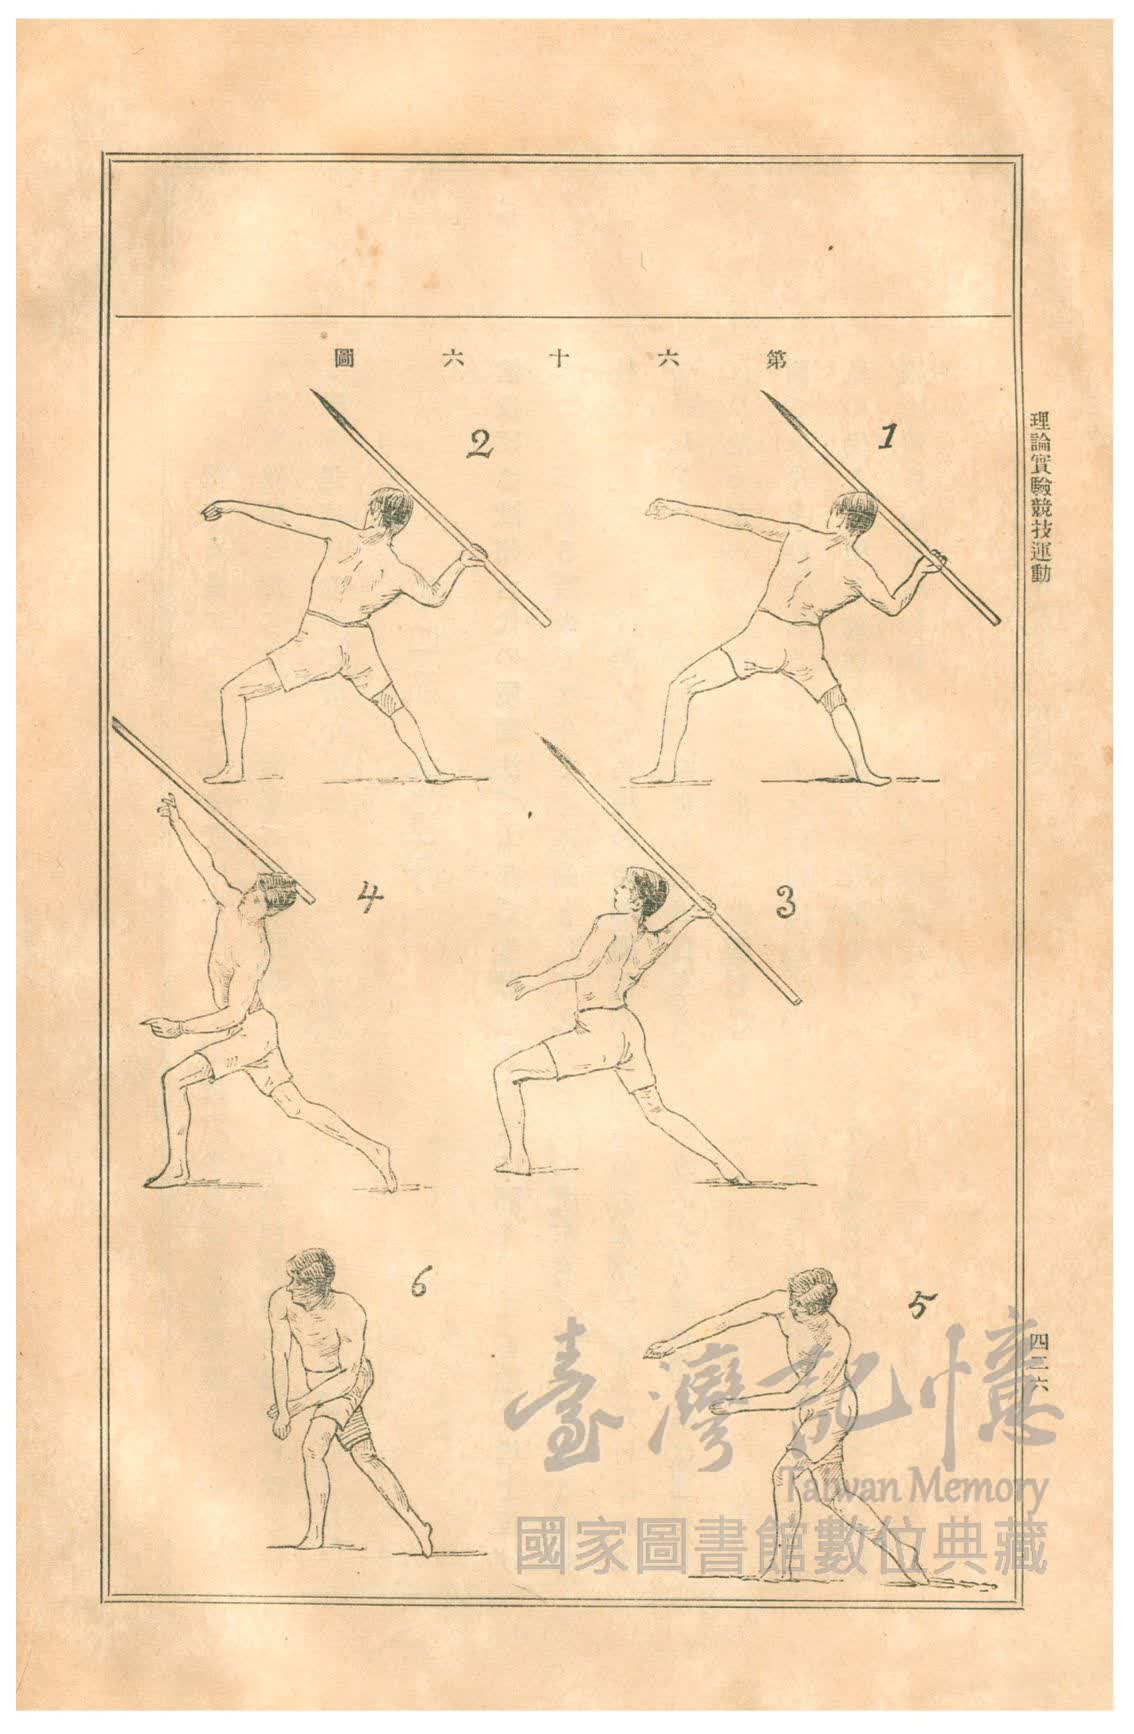 理論實驗競技運動
第六十六圖
1
2
3
4
5
6
四二六
臺灣記憶
Taiwan Memory
國家圖書館數位典藏